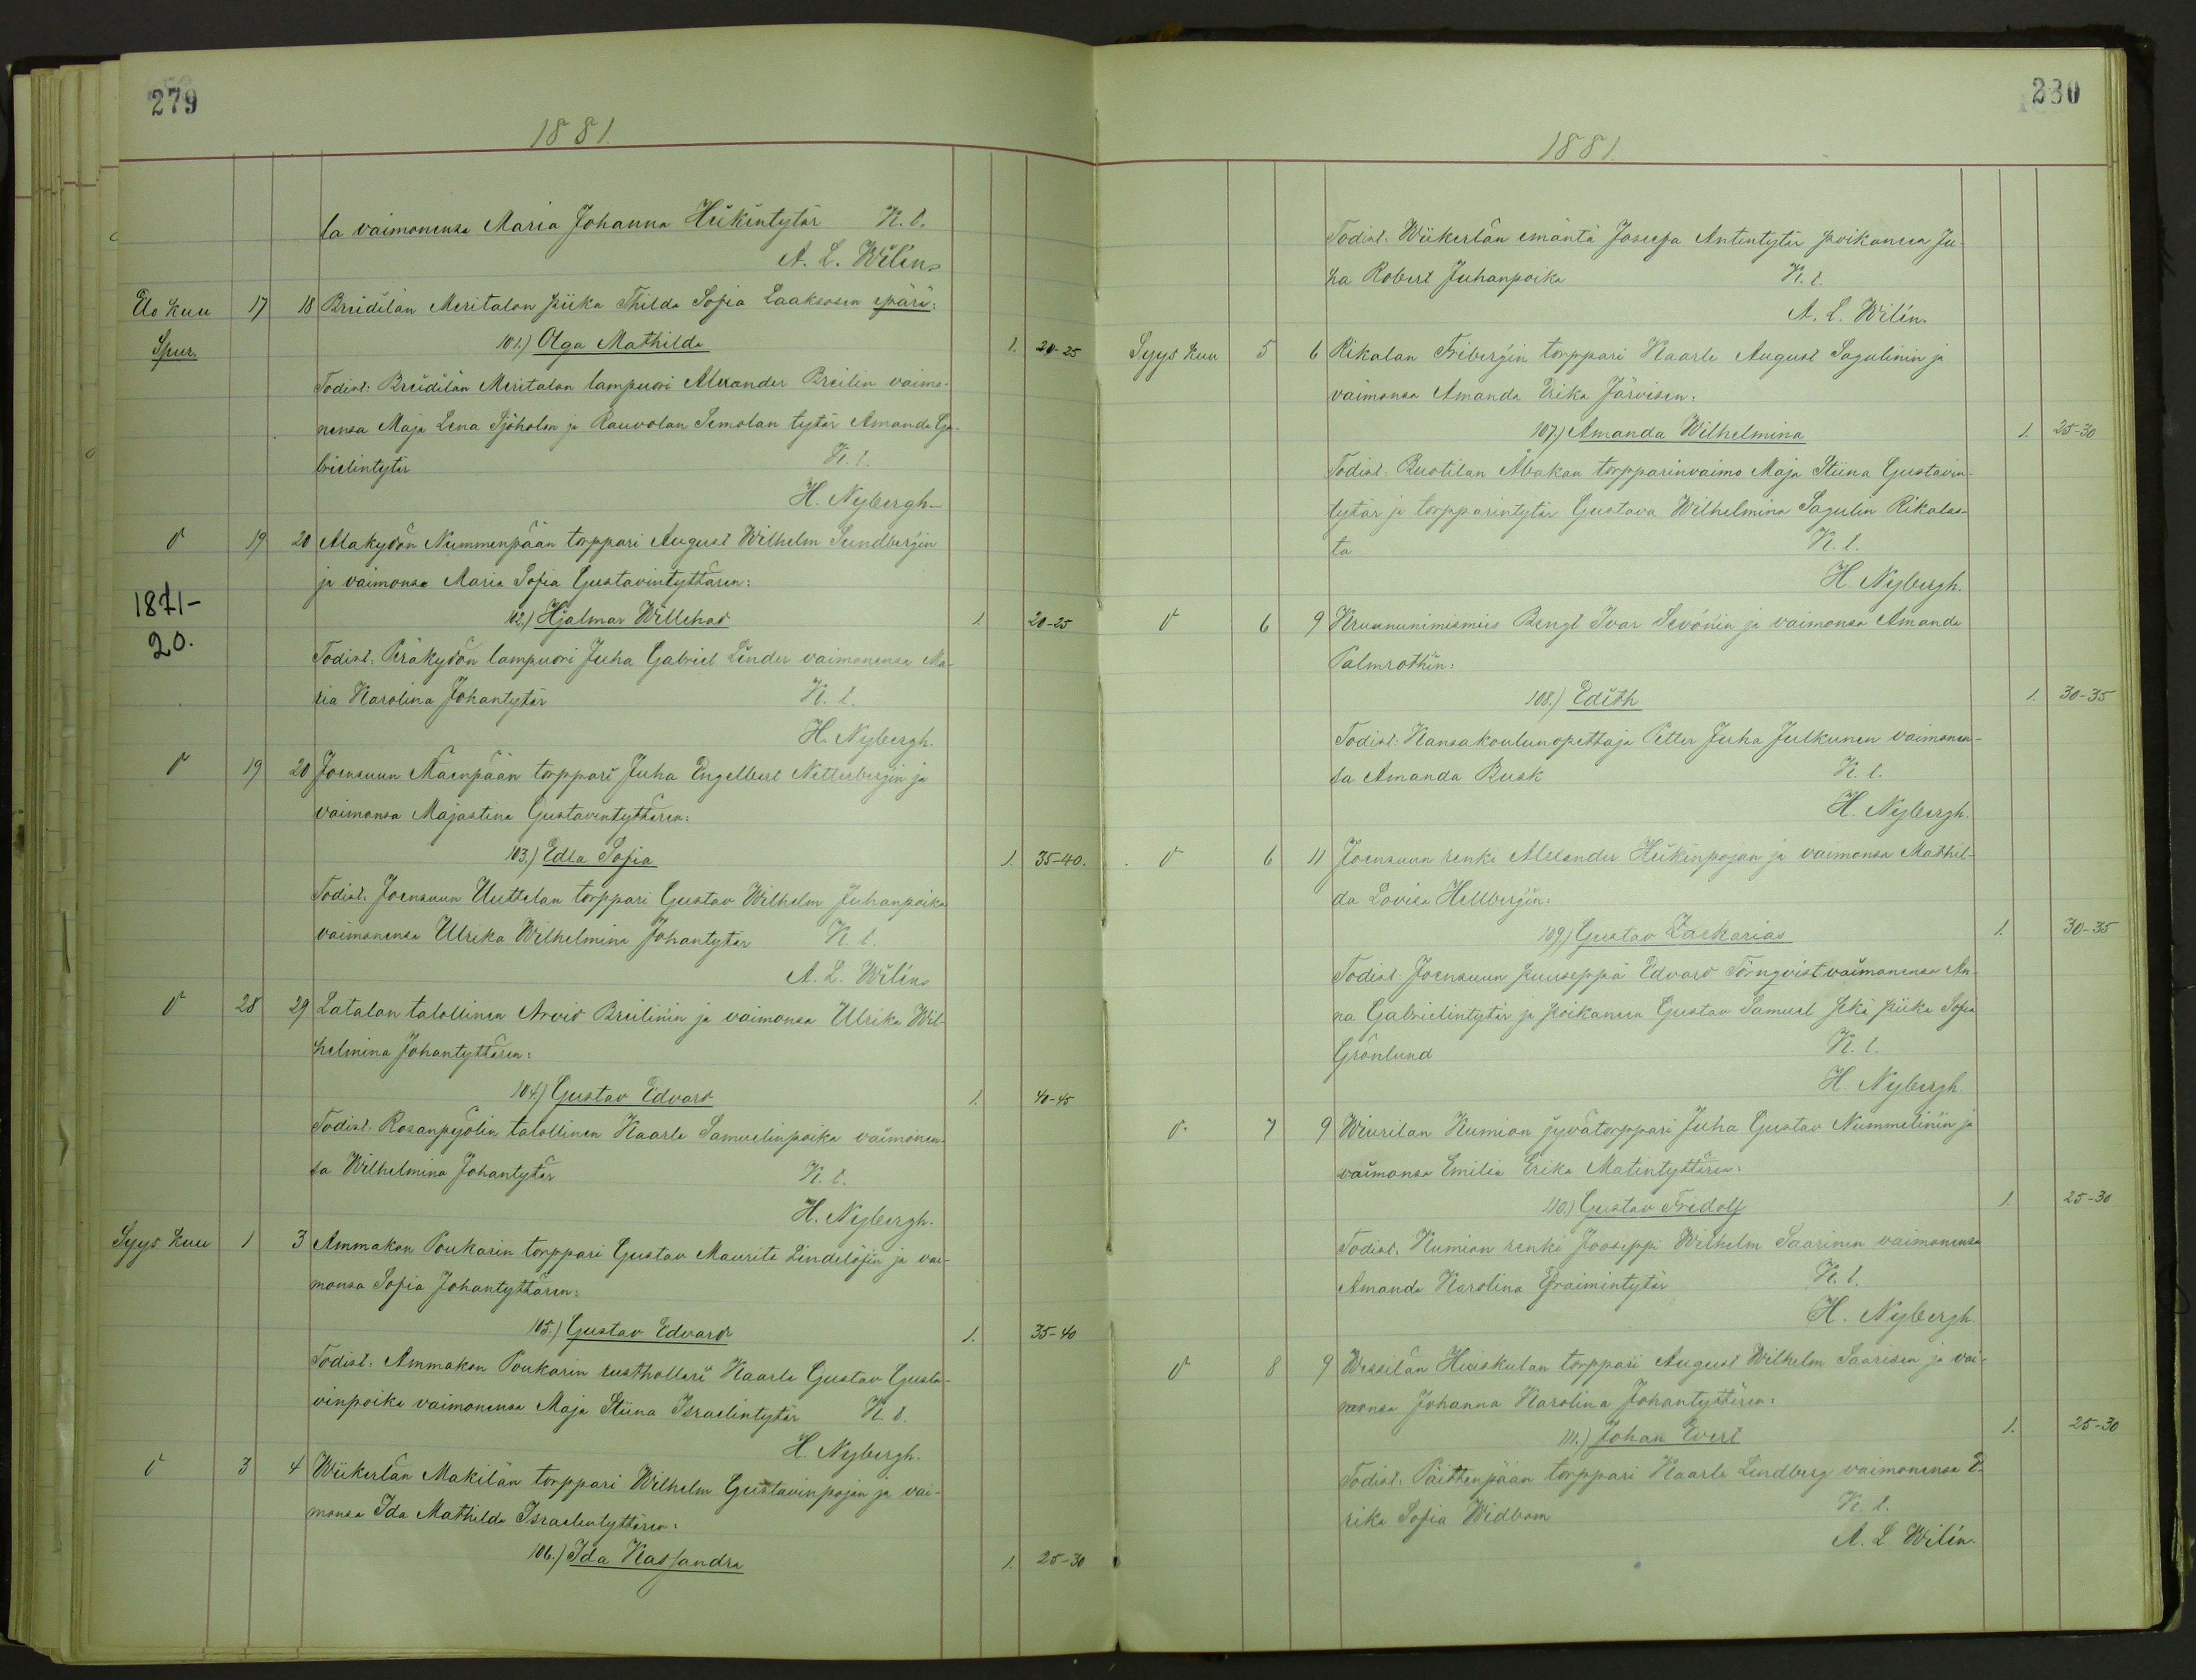 279
1881.
sa vaimonensa Maria Johanna Heikintytär K. l.
A. L. Wilén.
Elo kuu 17 18 Breidilän Meritalon piika Thilda Sofia Laaksosen spurä:
Spur. 101.) Olga Mathilda 1. 20-25
Todist: Breidilän Meritalon lampuori Alexander Breilin vaimo-
nensa Maja Lena Sjöholm ja Rauvolan Semolan tytär Amanda Ga-
brielintytär K. l.
H. Nybergh.
0 19 20 Alakydön Nummenpään torppari August Wilhelm Sundbergin
ja vaimonsa Maria Sofia Gustavintyttären:
1871-
20.
102.) Hjalmar Willehad 1. 20-25
Todist. Peräkydön lampuori Juha Gabriel Linder vaimonensa Ma-
ria Karolina Johantytär K. l.
H. Nybergh.
0 19 20 Joensuun Naenpään torppari Juha Engelbert Netterbergin ja
vaimonsa Majastina Gustavintyttären:
103.) Edla Sofia 1. 35-40.
Todist. Joensuun Uuttelan torppari Gustav Wilhelm Juhanpoika
vaimonensa Ulrika Wilhelmina Johantytär K. l.
A. L. Wilén.
0 28 29 Latalan talollinen Arvid Breilinin ja vaimonsa Ulrika Wil-
helmina Johantyttären:
104.) Gustav Edvard 1. 40-45
Todist. Rosanpejolin talollinen Kaarle Samuelinpoika vaimonen-
sa Wilhelmina Johantytär K. l.
H. Nybergh.
Syys kuu 1 3 Ammakon Poukarin torppari Gustav Maurits Lindelöfin ja vai-
monsa Sofia Johantyttären:
105.) Gustav Edvard 1. 35-40
Todist: Ammakon Poukarin rusthollari Kaarle Gustav Gusta-
vinpoika vaimonensa Maja Stiina Israelintytär K. l.
H. Nybergh.
0 3 4 Wiikerlän Makilän torppari Wilhelm Gustavinpojan ja vai-
monsa Ida Mathilda Israelintyttären:
106.) Ida Kassandra 1. 25-30
280
1881.
Todist. Wiikerlän emäntä Josepa Antintytär poikanensa Ju-
ha Robert Juhanpoika K. l.
A. L. Wilén.
Syys kuu 5 6 Rikalan Fribergin torppari Kaarle August Sagulinin ja
vaimonsa Amanda Erika Järvisen:
107.) Amanda Wilhelmina 1. 25-30
Todist. Ruotilan Åbakan torpparinvaimo Maja Stiina Gustavin-
tytär ja torpparintytär Gustava Wilhelmina Sagulin Rikalas-
ta K. l.
H. Nybergh.
0 6 9 Kruununimismies Bengt Ivar Sevónin ja vaimonsa Amanda
Palmrothin:
108.) Edith 1. 30-35
Todist: Kansakoulunopettaja Petter Juha Julkunen vaimonen-
sa Amanda Busk K. l.
H. Nybergh.
0 6 11 Joensuun renki Alexander Heikinpojan ja vaimonsa Mathil-
da Lovisa Hellbergin:
109.) Gustav Zackarias 1. 30-35
Todist. Joensuun puuseppä Edvard Törnqvist vaimonensa An-
na Gabrielintytär ja poikanen Gustav Samuel sekä piika Sofia
Grönlund K. l.
H. Nybergh.
0 7 9 Wiurilan Kumion jyvätorppari Juha Gustav Nummelinin ja
vaimonsa Emilia Erika Matintyttären:
110.) Gustav Fridolf 1. 25-30
Todist. Kumion renki Jooseppi Wilhelm Saarinen vaimonensa
Amanda Karolina Efraimintytär K. l.
H. Nybergh.
0 8 9 Wessilän Huiskulan torppari August Wilhelm Saarisen ja vai-
monsa Johanna Karolina Johantyttären:
111.) Johan Evert 1. 25-30
Todist. Paittenpään torppari Kaarle Lindberg vaimonensa E-
rika Sofia Widbom K. l.
A. L. Wilén.